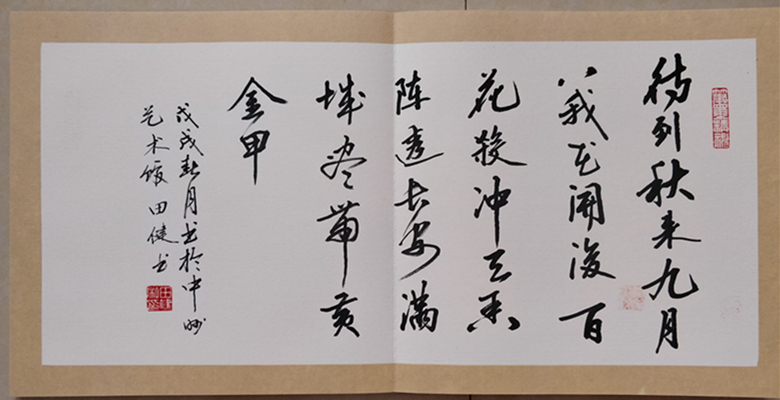 待到秋来九月
八我花開後百
花殺冲天香
阵透长安满
城尽帶黄
金甲
戊戌春月书於中州
艺术馆田健书